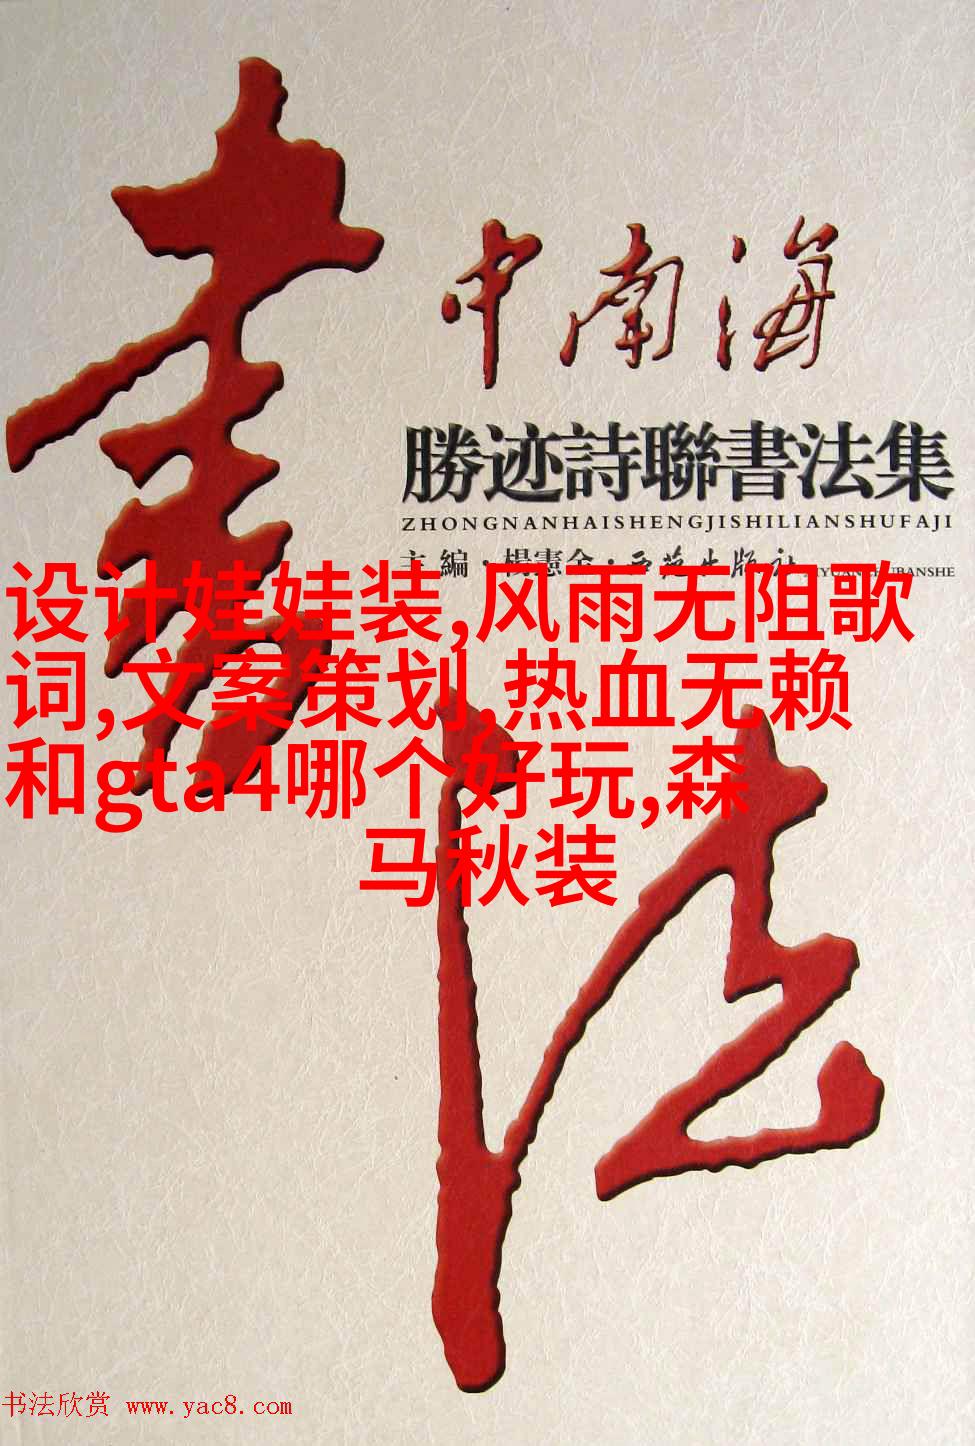 書法
中南海
勝迹詩聯書法集
ZHONGNANHAISHENGJISHILIANSHUFAJI
主編·楊憲金·西苑出版社
设计娃娃装,风雨无阻歌
词,文案策划,热血无赖
和gta4哪个好玩,森
马秋装
书法欣赏 www.yac8.com